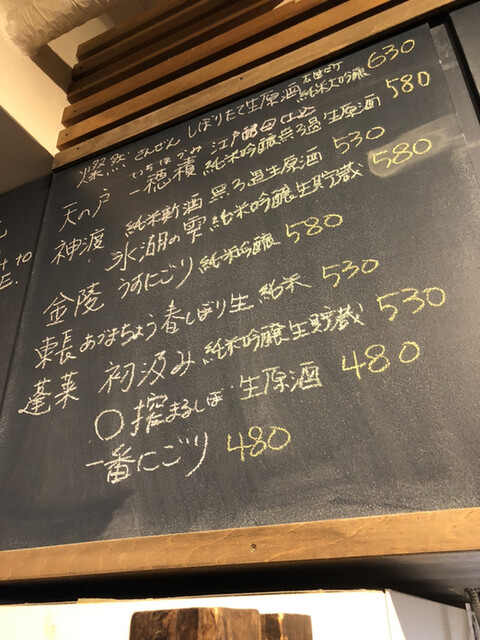 燦然 さんぜん しぼりたて生原酒 純米大吟醸 630
いちほづみ 江戸酵母仕込
天の戸 一穂積 純米吟醸無ろ過生原酒 580
神渡 純米新酒 無ろ過生原酒 530
氷湖の雫 純米吟醸生貯蔵 580
金陵 うすにごり 純米吟醸 580
東長 あづまちょう 春しぼり生 純米 530
蓬莱 初汲み 純米吟醸生貯蔵 530
○搾 まるしぼ 生原酒 480
一番にごり 480